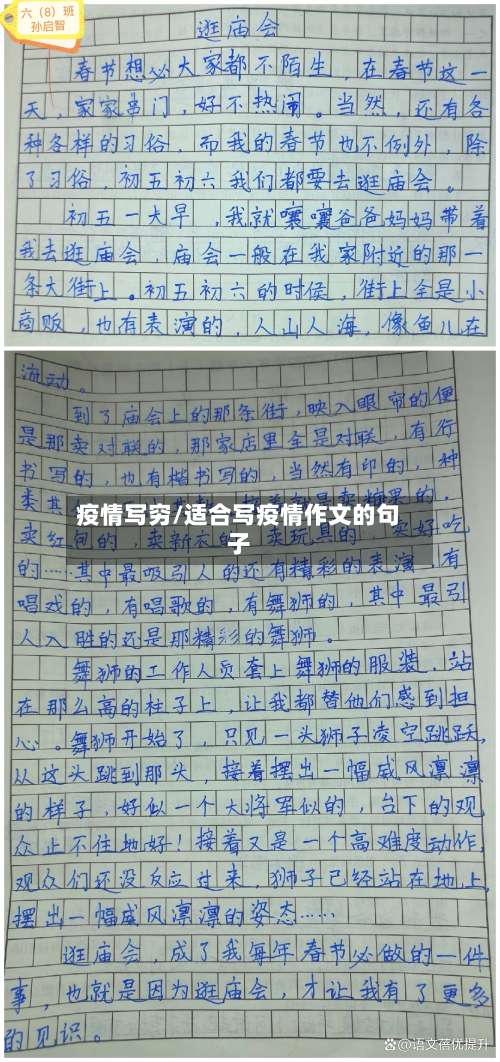 六（8）班
孙启智
逛庙会
春节想必大家都不陌生，在春节这一
天，家家串门，好不热闹。当然，还有各
种各样的习俗，而我的春节也不例外，除
了习俗，初五初六我们都要去逛庙会。
初五一大早，我就嚷嚷爸爸妈妈带着
我去逛庙会，庙会一般在我家附近的那一
条大街上。初五初六的时侯，街上全是小
商贩，也有表演的，人山人海，像鱼儿在
流动。
到了庙会上的那条街，映入眼帘的便
是那卖对联的，那家店里全是对联，有行
书写的，也有楷书写的，当然有印的，种
类其
卖糖果的，
疫情写穷/适合写疫情作文的句
子
卖红包的，卖新衣的，卖玩具的，卖好吃
的……其中最吸引人的还有精彩的表演，有
唱戏的，有唱歌的，有舞狮的，其中最引
人入胜的还是那精彩的舞狮。
舞狮的工作人员套上舞狮的服装，站
在那么高的柱子上，让我都替他们感到担
心。舞狮开始了，只见一头狮子凌空跳跃，
从这头跳到那头，接着摆出一幅威风凛凛
的样子，好似一个大将军似的，台下的观
众止不住地好！接着又是一个高难度动作，
观众们还没反应过来，狮子已经站在地上，
摆出一幅威风凛凛的姿态……
逛庙会，成了我每年春节必做的一件
事，也就是因为逛庙会，才让我有了更多
的见识。
@语文蓓优提升